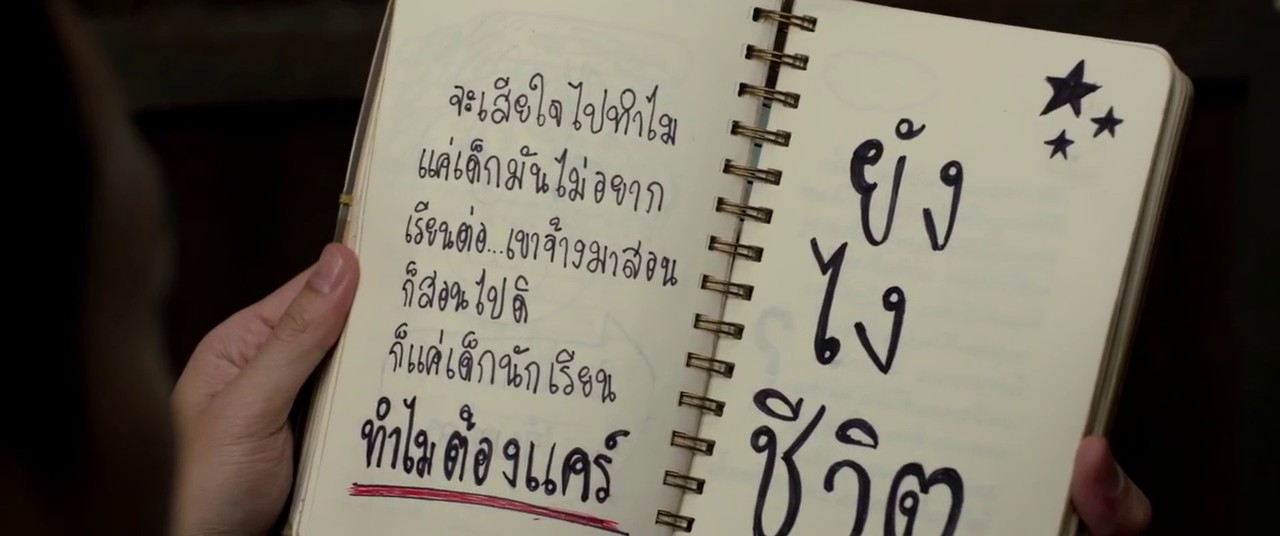 จะเสียใจไปทำไม
แค่เด็กมันไม่อยาก
เรียนต่อ...เขาจ้างมาสอน
ก็สอนไปดิ
ก็แค่เด็กนักเรียน
ทำไมต้องแคร์
ยัง
ไง
ชีวิต